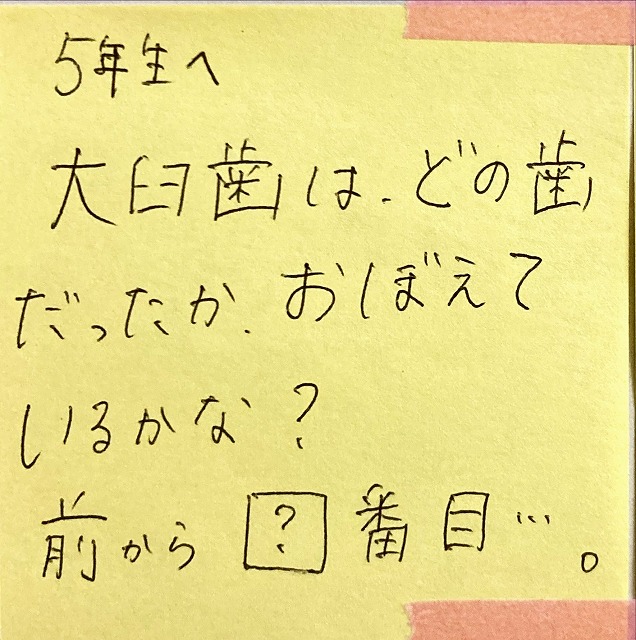 5年生へ
大臼歯は、どの歯
だったか、おぼえて
いるかな?
前から ? 番目…。